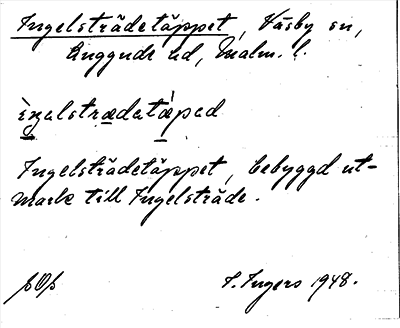 Ingelsträdetäppet, Väsby sn,
Luggude hd, Malm. l.
ìŋəlstrædətæ̀pəd
Ingelsträdetäppet, bebyggd ut-
mark till Ingelsträde.
I. Ingers 1948.